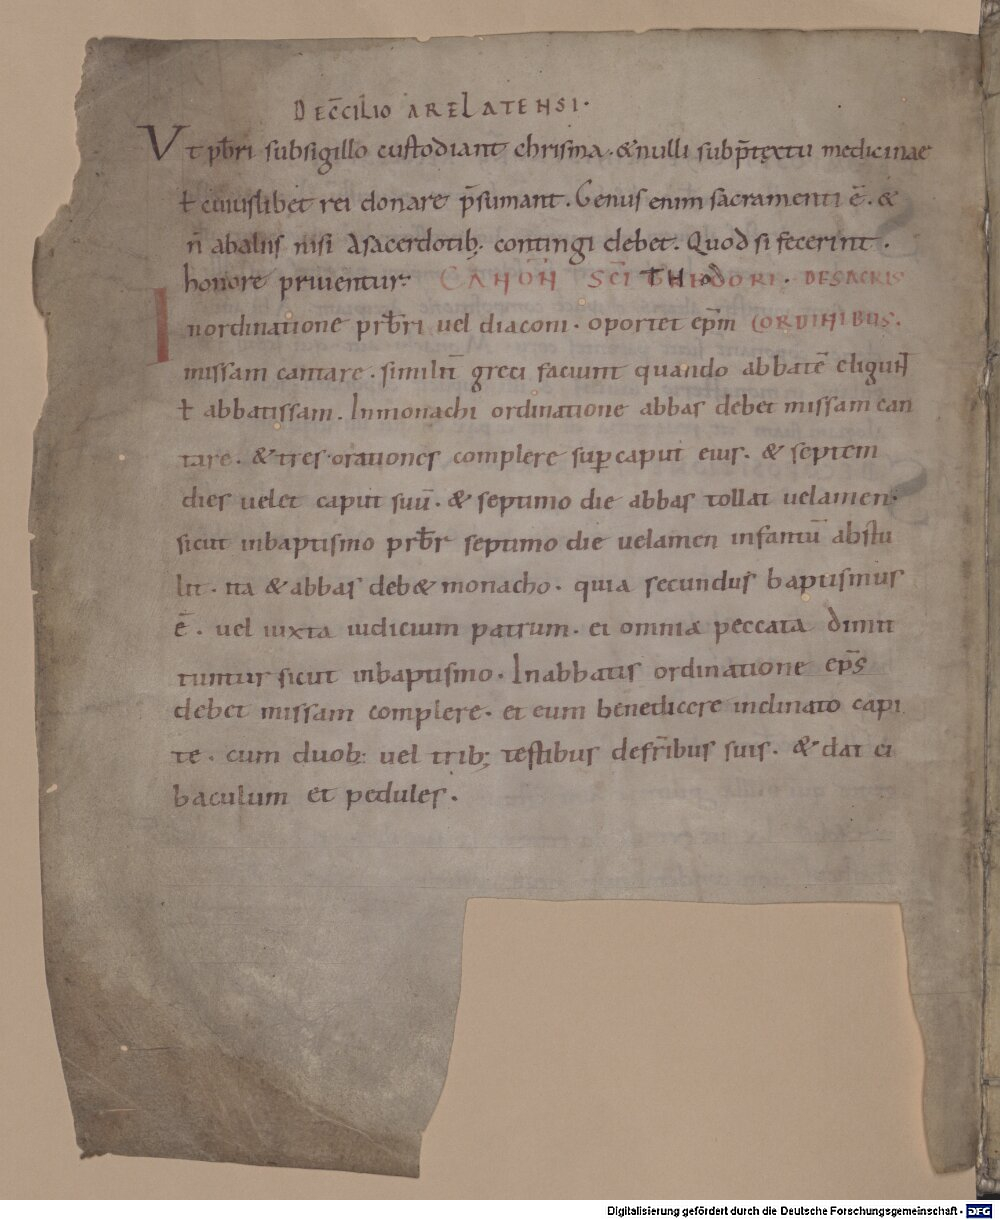 DE CC̄ILIO ARELATENSI·
Vt pb̄ri subsigillo custodiant chrisma· &nulli subp̄textu medicinae
ƚ cuiuslibet rei donare p̄sumant. Genus enim sacramenti ē· &
n̄ abaliis nisi Asacerdotib; contingi debet. Quod si fecerint·
honore priuentur· CANON SC̄I THEODORI· DESACRIS
Inordinatione prb̄ri uel diaconi· oportet ep̄m ORDINIBUS.
missam cantare· similit̄ greci faciunt quando abbatē eligunt
ƚ abbatissam. Inmonachi ordinatione abbas debet missam can
tare· &tres·orationes complere sup caput eius· & septem
dies uelet caput suū· & septimo die abbas tollat uelamen·
sicut inbaptismo prb̄r septimo die uelamen infantū abstu
lit· ita &abbas deb& monacho· quia secundus baptismus
ē· uel iuxta iudicium patrum· et omnia peccata dimit
tuntur sicut inbaptismo· Inabbatis ordinatione ep̄s
debet missam complere· et eum benedicere inclinato capi
te· cum duob; uel trib; testibus defr̄ibus suis· &dat ei
baculum et pedules.
Digitalisierung gefördert durch die Deutsche Forschungsgemeinschaft - DFG